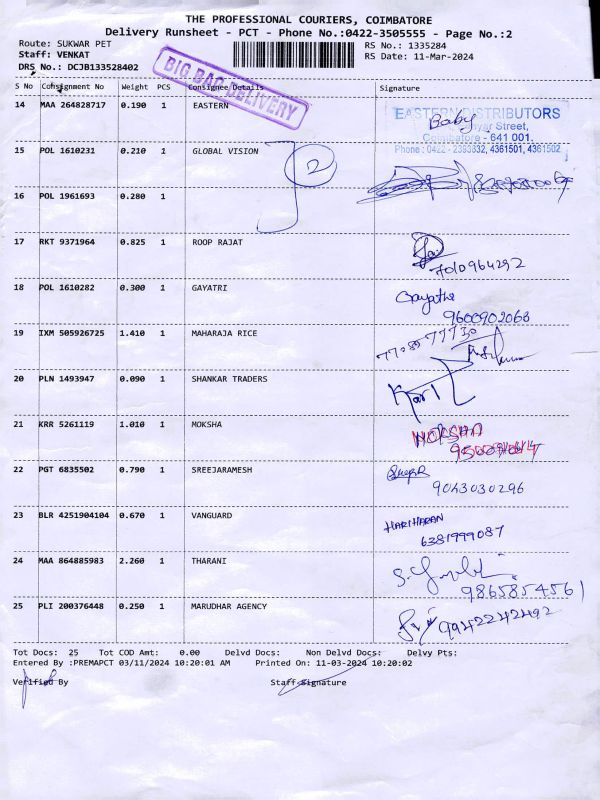 THE PROFESSIONAL COURIERS, COIMBATORE
Delivery Runsheet - PCT - Phone No.:0422-3505555 - Page No.:2
Route: SUKWAR PET
RS No.: 1335284
Staff: VENKAT
RS Date: 11-Mar-2024
DRS No.: DCJB133528402
BIG BAG DELIVERY
S No Consignment No Weight PCS Consignee Details Signature
14 MAA 264828717 0.190 1 EASTERN
EASTERN DISTRIBUTORS
Baby
Street,
Coimbatore - 641 001.
Phone : 0422 - 2393832, 4361501, 4361502
15 POL 1610231 0.210 1 GLOBAL VISION
2
16 POL 1961693 0.280 1
17 RKT 9371964 0.825 1 ROOP RAJAT
7010964292
18 POL 1610282 0.300 1 GAYATRI
Gayathri
9600902068
19 IXM 505926725 1.410 1 MAHARAJA RICE
20 PLN 1493947 0.090 1 SHANKAR TRADERS
21 KRR 5261119 1.010 1 MOKSHA
MOKSHA
22 PGT 6835502 0.790 1 SREEJARAMESH
9043030296
23 BLR 4251904104 0.670 1 VANGUARD
HARIHARAN
6381999087
24 MAA 864885983 2.260 1 THARANI
9865854561
25 PLI 200376448 0.250 1 MARUDHAR AGENCY
9942242492
Tot Docs: 25 Tot COD Amt: 0.00 Delvd Docs: Non Delvd Docs: Delvy Pts:
Entered By :PREMAPCT 03/11/2024 10:20:01 AM Printed On: 11-03-2024 10:20:02
Verified By Staff Signature